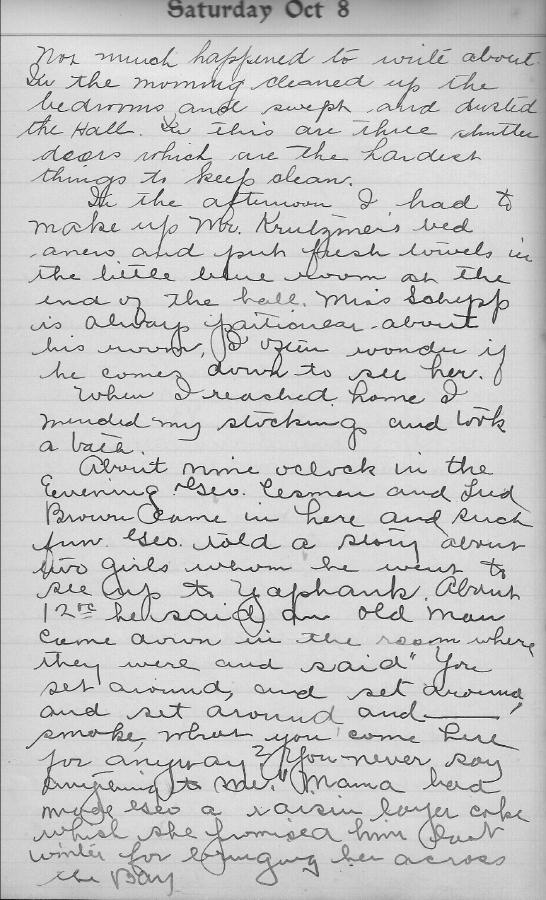 Saturday Oct 8
Not much happened to write about.
In the morning cleaned up the
bedrooms and swept and dusted
the Hall. In this are three shutter
doors which are the hardest
things to keep clean.
In the afternoon I had to
make up Mr. Krutzmer's bed
anew and put fresh towels in
the little blue room at the
end of the hall. Miss Schepp
is always paticular about
his room, I often wonder if
he comes down to see her.
When I reached home I
mended my stockings and took
a bath.
About nine oclock in the
Evening Geo. and Fred
Brown Came in here and such
fun. Geo. told a story about
two girls whom he went to
see up to Yaphank. About
12 oc he said an old man
came down in the room where
they were and said "You
set around, and set around,
and set around and——'
smoke, what you come here
for anyway? You never say
to me." Mama had
made Geo a raisin layer cake
which she promised him last
winter for bringing her across
the Bay